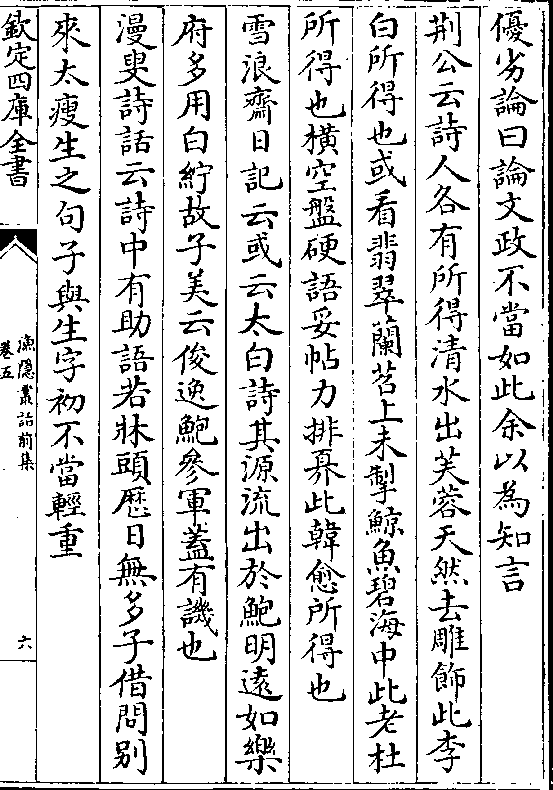 優劣論曰論文政不當如此余以為知言
荆公云詩人各有所得清水出芙蓉天然去雕飾此李
白所得也或看翡翠蘭苕上未掣鯨魚碧海中此老杜
所得也橫空盤硬語妥帖力排奡此韓愈所得也
雪浪齋日記云或云太白詩其源流出於鮑明遠如樂
府多用白紵故子美云俊逸鮑參軍蓋有譏也
漫叟詩話云詩中有助語若牀頭厯日無多子借問别
來太瘦生之句子與生字初不當輕重
欽定四庫全書
漁隱叢話前集
卷五
六